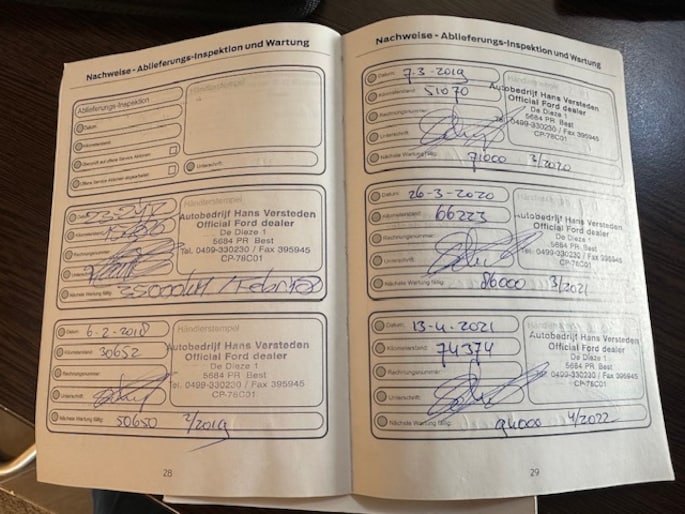 Nachweise - Ablieferungs-Inspektion und Wartung
Ablieferungs-Inspektion
Händlerstempel
Datum:
Kilometerstand:
Geprüft auf offene Service Aktionen
Offene Service Aktionen abgearbeitet
Unterschrift:
Datum:
Händlerstempel
Kilometerstand:
Autobedrijf Hans Versteden
De Dieze 1
Rechnungsnummer:
5684 PR Best
Tel. 0499-330230 / Fax 395945
CP-78C01
Nächste Wartung fällig:
Datum: 6-2-2018
Händlerstempel
Kilometerstand: 30652
Autobedrijf Hans Versteden
Official Ford dealer
De Dieze 1
Rechnungsnummer:
5684 PR Best
Tel. 0499-330230 / Fax 395945
CP-78C01
Unterschrift:
Nächste Wartung fällig: 50650 2/2019
28
Nachweise - Ablieferungs-Inspektion und Wartung
Datum: 7-3-2019
Kilometerstand: 51070
Autobedrijf Hans Versteden
Official Ford dealer
De Dieze 1
Rechnungsnummer:
5684 PR Best
0499-330230 / Fax 395945
CP-78C01
Unterschrift:
Nächste Wartung fällig: 71000 3/2020
Datum: 26-3-2020
Kilometerstand: 66223
Autobedrijf Hans Versteden
Official Ford dealer
De Dieze 1
Rechnungsnummer:
5684 PR Best
Tel. 0499-330230 / Fax 395945
CP-78C01
Unterschrift:
Nächste Wartung fällig: 86000 3/2021
Datum: 13-4-2021
Händlerstempel
Kilometerstand: 74374
Autobedrijf Hans Versteden
Official Ford dealer
De Dieze 1
Rechnungsnummer:
5684 PR Best
Tel. 0499-330230 / Fax 395945
CP-78C01
Unterschrift:
Nächste Wartung fällig: 94000 4/2022
29